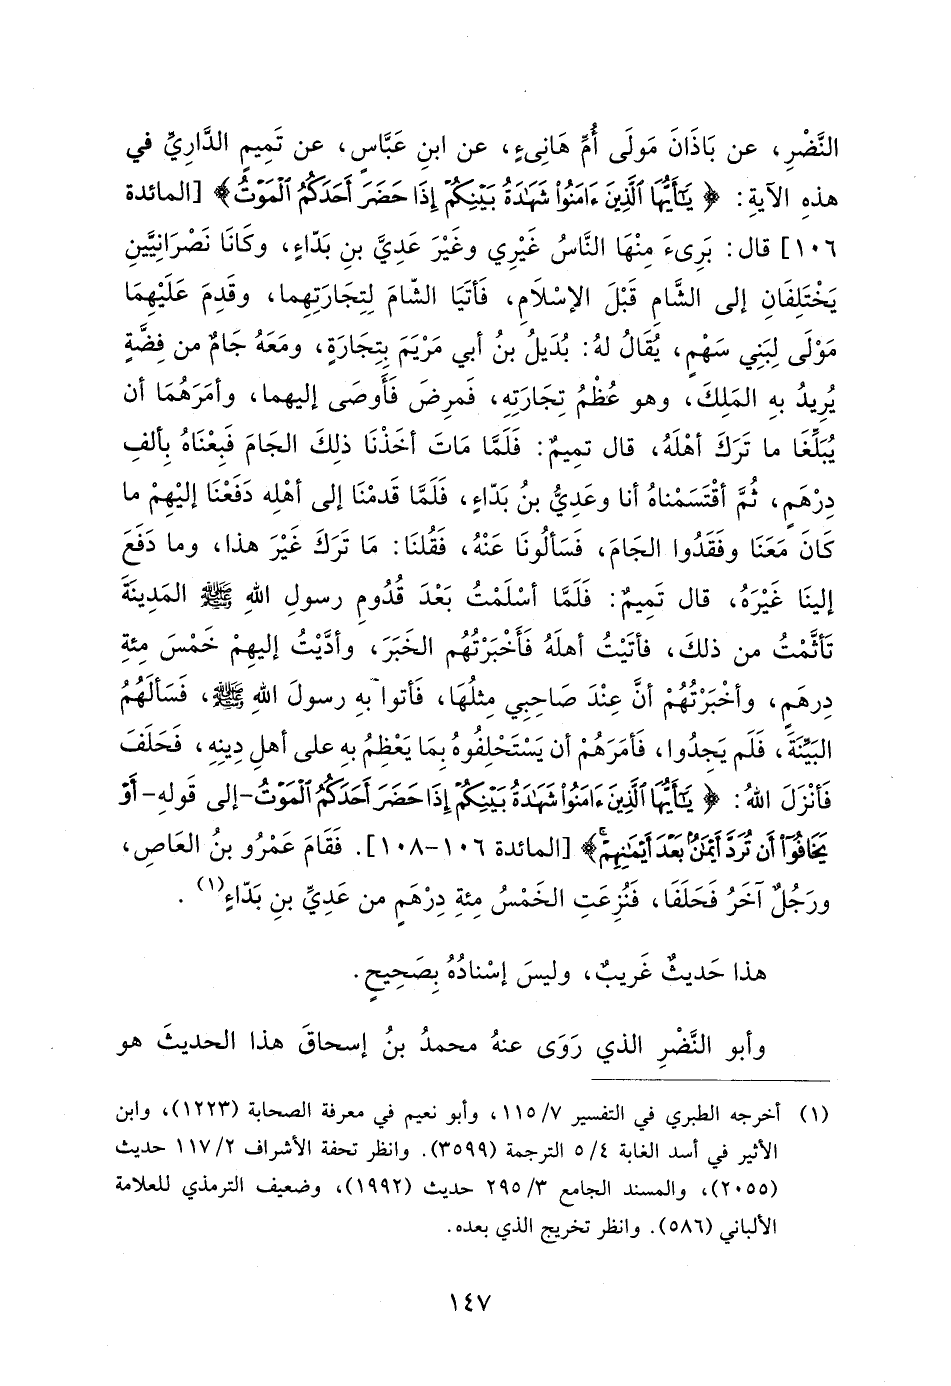 النَّضْرِ، عن بَاذَانَ مَولَى أُمِّ هَانِىءٍ، عن ابنِ عَبَّاسٍ، عن تَمِيمٍ الدَّارِيِّ في
هذه الآيةِ: ﴿ يَٰٓأَيُّهَا ٱلَّذِينَ ءَامَنُوا۟ شَهَٰدَةُ بَيْنِكُمْ إِذَا حَضَرَ أَحَدَكُمُ ٱلْمَوْتُ ﴾ [المائدة
١٠٦] قال: بَرِىءَ مِنْهَا النَّاسُ غَيْرِي وغَيْرَ عَدِيِّ بنِ بَدّاءٍ، وكَانَا نَصْرَانِيَّيْنِ
يَخْتَلِفَانِ إلى الشَّامِ قَبْلَ الإسْلَامِ، فَأتَيَا الشّامَ لِتِجَارَتِهِما، وقَدِمَ عَلَيْهِمَا
مَوْلَى لِبَنِي سَهْمٍ، يُقَالُ لهُ: بُدَيلُ بنُ أبي مَرْيَمَ بِتِجَارَةٍ، ومَعَهُ جَامٌ من فِضَّةٍ
يُرِيدُ به المَلِكَ، وهو عُظْمُ تِجَارَتِهِ، فَمرِضَ فَأَوصَى إليهما، وأمَرَهُمَا أن
يُبَلِّغَا ما تَرَكَ أهْلَهُ، قال تميمٌ: فَلَمَّا مَاتَ أخَذْنَا ذلِكَ الجَامَ فَبِعْنَاهُ بِألفِ
دِرْهَمٍ، ثُمَّ أقْتَسَمْناهُ أنا وعَدِيُّ بنُ بَدّاءٍ، فَلَمَّا قَدمْنَا إلى أهْلهِ دَفَعْنَا إليْهِمْ ما
كَانَ مَعَنَا وفَقَدُوا الجَامَ، فَسَألُونَا عَنْهُ، فَقُلنَا: مَا تَرَكَ غَيْرَ هذا، وما دَفَعَ
إلينَا غَيْرَهُ، قال تَمِيمٌ: فَلَمَّا أسْلَمْتُ بَعْدَ قُدُومِ رسولِ اللهِ ﷺ المَدِينَةَ
تَأثَّمْتُ من ذلكَ، فأتَيْتُ أهلَهُ فَأَخْبَرْتُهُم الخَبَرَ، وأدَّيْتُ إليهِمْ خَمْسَ مِئةِ
دِرهَمٍ، وأخْبَرْتُهُمْ أنَّ عِنْدَ صَاحِبِي مِثلُهَا، فَأتوا به رسولَ اللهِ ﷺ، فَسَألَهُمُ
البَيِّنَةَ، فَلَم يَجِدُوا، فَأمَرَهُمْ أن يَسْتَحْلِفُوهُ بِمَا يَعْظِمُ بهِ على أهلِ دِينِهِ، فَحَلَفَ
فَأنْزَلَ اللهُ: ﴿ يَٰٓأَيُّهَا ٱلَّذِينَ ءَامَنُوا۟ شَهَٰدَةُ بَيْنِكُمْ إِذَا حَضَرَ أَحَدَكُمُ ٱلْمَوْتُ -إلى قولهِ- أَوْ
يَخَافُوٓا۟ أَن تُرَدَّ أَيْمَٰنٌۢ بَعْدَ أَيْمَٰنِهِمْ ﴾ [المائدة ١٠٦-١٠٨]. فَقَامَ عَمْرُو بنُ العَاصِ،
ورَجُلٌ آخَرُ فَحَلَفَا، فَنُزِعَتِ الخَمْسُ مِئةِ دِرْهَمٍ من عَدِيِّ بنِ بَدّاءٍ(١) .
هذا حَديثٌ غَرِيبٌ، وليسَ إسْنادُهُ بِصَحِيحٍ.
وأبو النَّضْرِ الذي رَوَى عنهُ محمدُ بنُ إسحاقَ هذا الحديثَ هو
(١) أخرجه الطبري في التفسير ٧/ ١١٥، وأبو نعيم في معرفة الصحابة (١٢٢٣)، وابن
الأثير في أسد الغابة ٤/ ٥ الترجمة (٣٥٩٩). وانظر تحفة الأشراف ٢/ ١١٧ حديث
(٢٠٥٥)، والمسند الجامع ٣/ ٢٩٥ حديث (١٩٩٢)، وضعيف الترمذي للعلامة
الألباني (٥٨٦). وانظر تخريج الذي بعده.
١٤٧